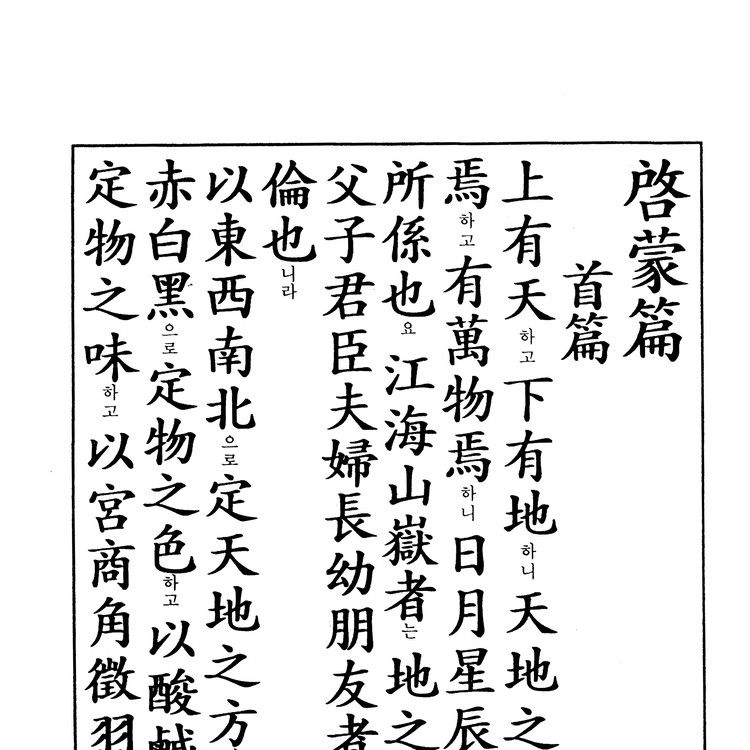 啓蒙篇
首篇
上有天하고下有地하니天地之
焉하고有萬物焉하니日月星辰
所係也요江海山嶽者는地之
父子君臣夫婦長幼朋友者
倫也니라
以東西南北으로定天地之方
赤白黑으로定物之色하고以酸鹹
定物之味하고以宮商角徵羽